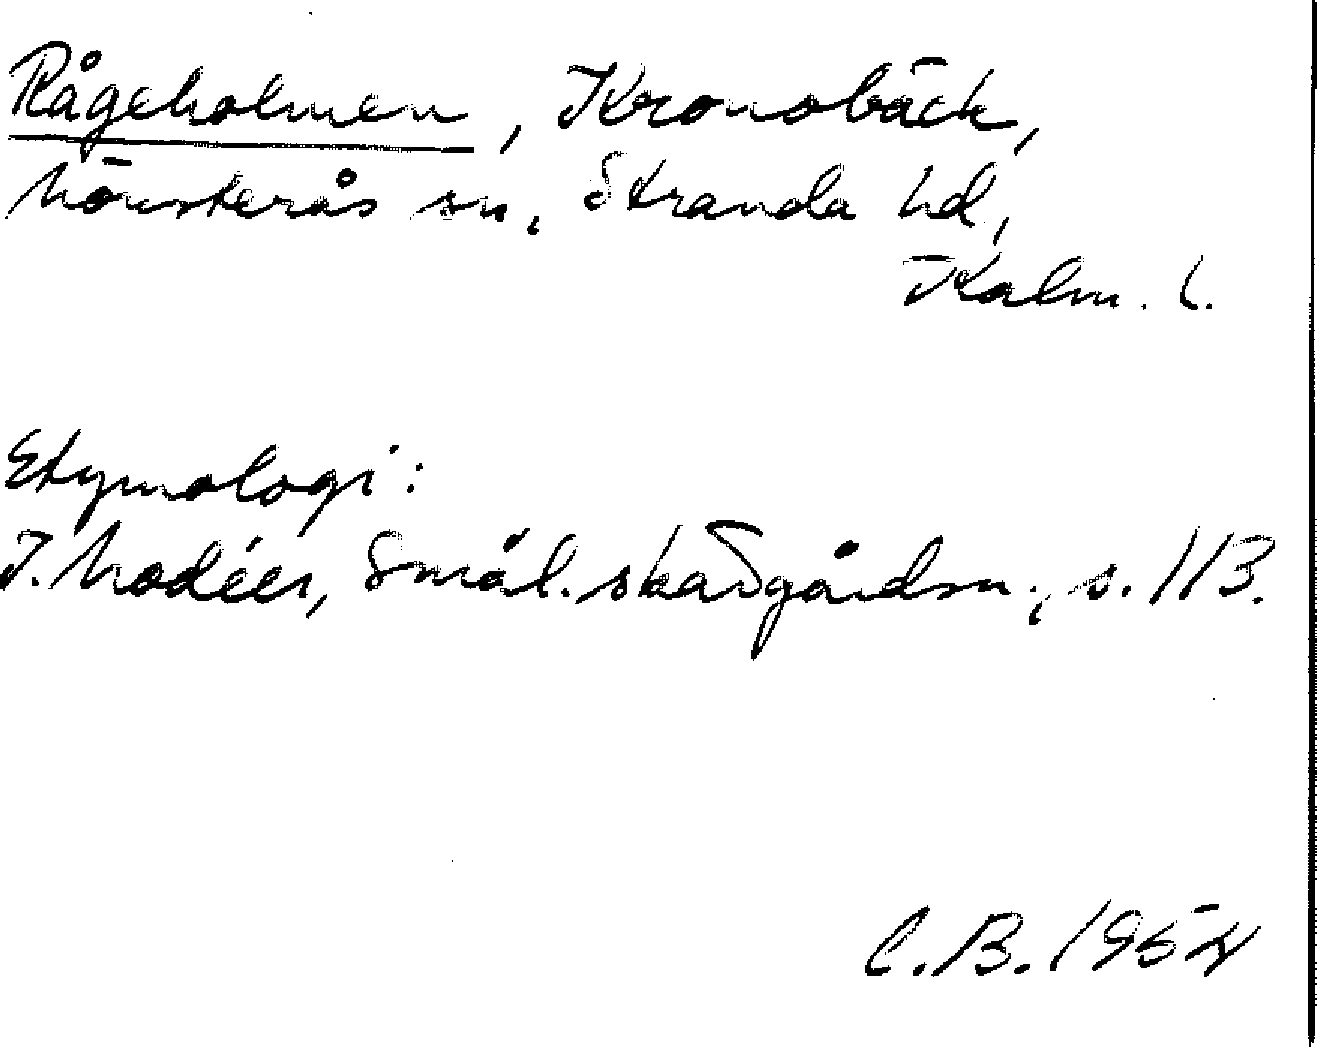 Rågeholmen, Kronobäck,
Mönsterås sn, Stranda hd,
Kalm. l.
Etymologi:
I. Modéer, Smål. skärgårdsn., s. 113.
C.B. 1954